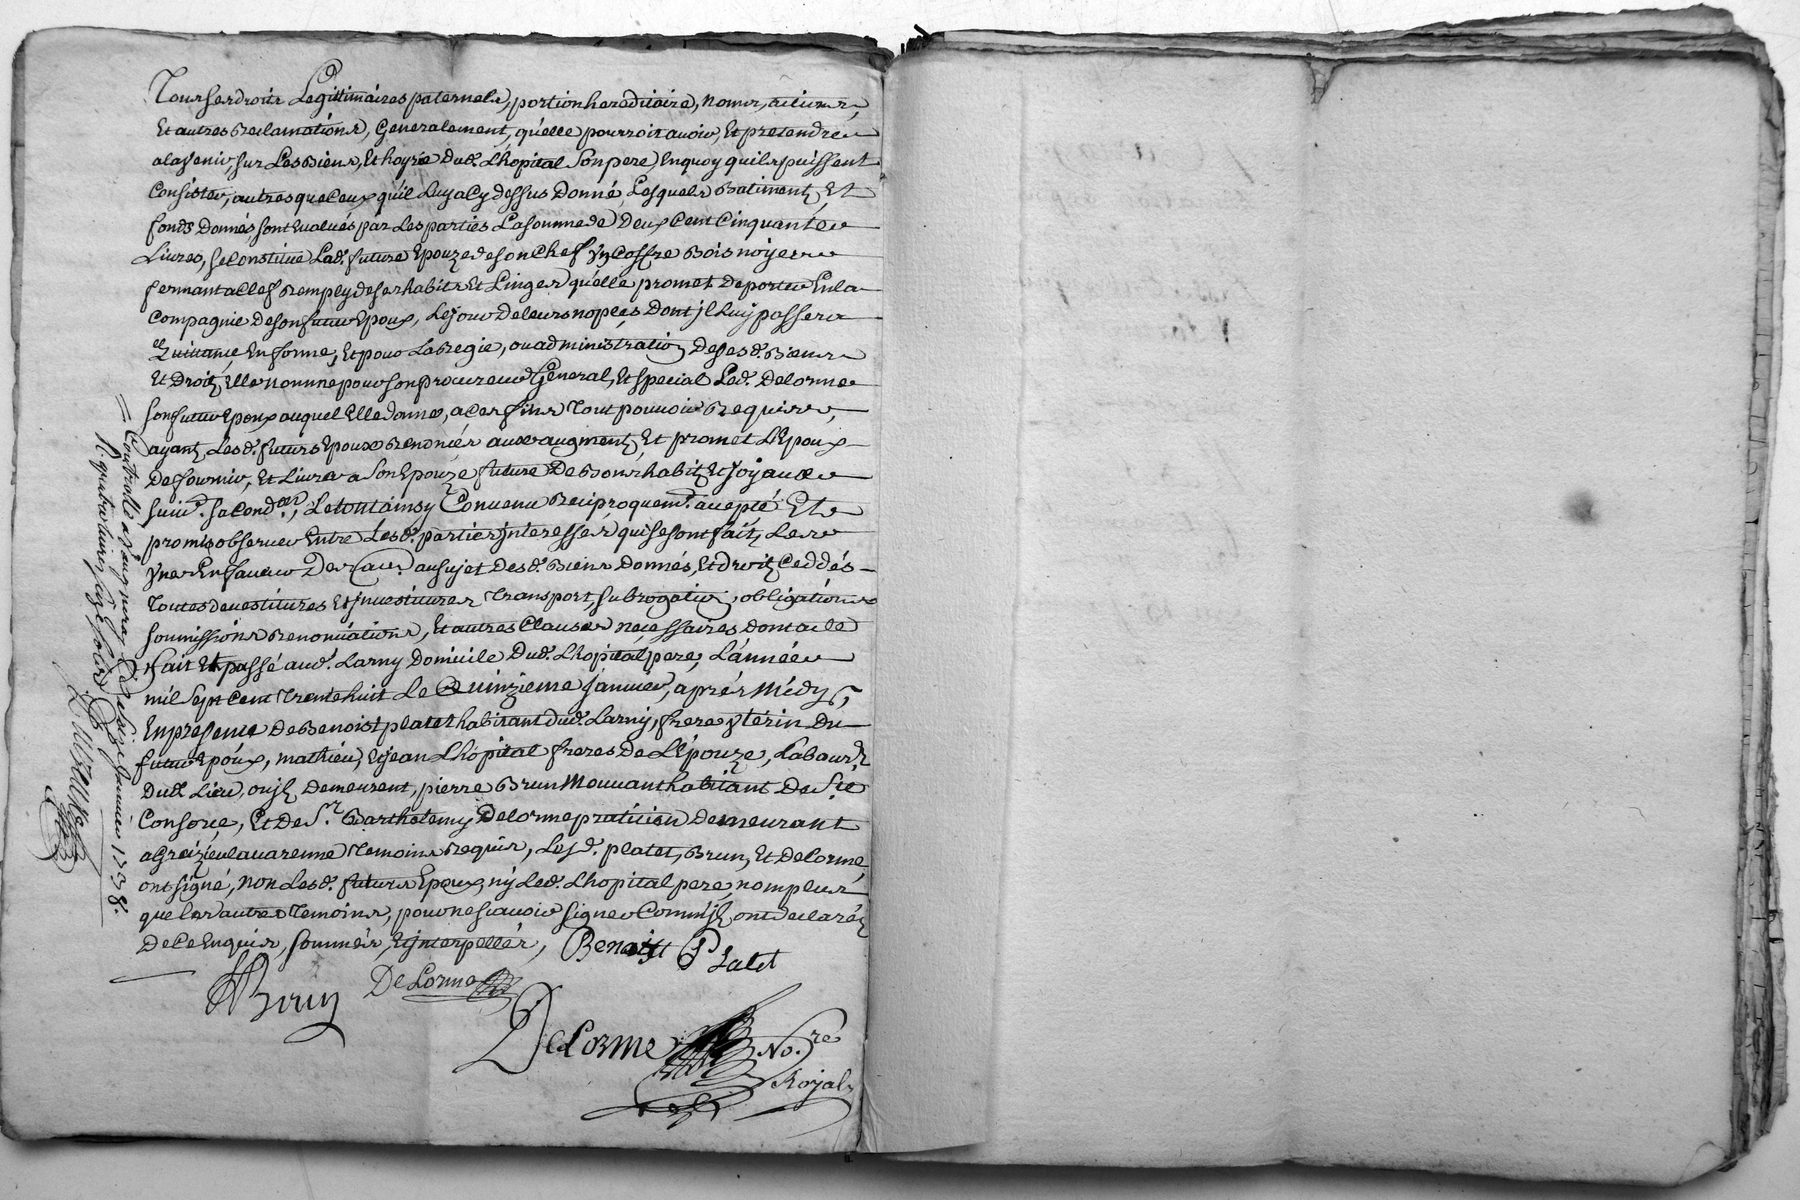 Tous ses droits Legittimaires paternels, portion hereditaire, noms, actions,
Et autres Reclamations, Generalement, qu'elle pourroit avoir, Et pretendre
alavenir, sur Les Biens, Et hoyrie Dud. Lhopital Son pere, Enquoy qu'ils puissent
Consister, autres que Ceux qu'il Luy a Cy dessus Donné, Lesquels Batiments, Et
fonds Donnés, sont Evalués par Les parties La somme de Deux Cent Cinquante
Livres, se Constitue Lad. future Epouze de son Chef Yn Coffre Bois noyer
fermant a Clef Remply de ses habits Et Linges qu'elle promet De porter En la
Compagnie De son futur Epoux, Le jour De leurs nopces Dont jl Luy passera
Quittance En forme, Et pour La Regie, ou administration De ses d. Biens
Et Droits, Elle nomme pour son procureur General, Et special Led. Delorme
son futur Epoux auquel Elle donne, a Ces fins Tout pouvoir Requis,
ayant Lesd. futurs Epoux Renoncés aux augments, Et promet L'Epoux
De fournir, Et Livrer a Son Epouze future De Bons habits Et Joyaux
suiv.t sa Cond.on, Le tout ainsy Convenu Reciproquem.t accepté Et
promis observer Entre Lesd. parties jnteressés qui se sont fait, Les
Ynes En faveur Des au.es au sujet Desd. Biens Donnés, Et droits Ceddés
Toutes devestitures Et jnvestitures Transport, subrogation, obligations
soumissions Renonciations, Et autres Clauses necessaires dont acte
Fait Et passé aud. Larny Domicile Dud. Lhopital pere, L'année
mil Sept Cent Trente huit Le Quinzieme Janvier, aprés Médy,
En presence De Benoist platet habitant dud. Larny, frere yterin Du
futur Epoux, mathieu, Et jean Lhopital freres De L'Epouze, Labour.rs
Dud. Lieu, ou jls Demeurent, pierre Brun Mouvant habitant De S.te
Consorce, Et De S.r Barthelemy Delorme praticien demeurant
a Grezieu lavarenne Temoins Requis, Lesd. platet, Brun, Et Delorme
ont signé, non Lesd. futurs Epoux, ny Led. Lhopital pere, nomplus
que Les autres Temoins, pour ne scavoir signer Comm'jls ont declarés
De Ce Enquis, sommés, Et jnterpellés, Benoist Platet
Brun DeLorme
DeLorme No.re
Royal
Controllé a Le seize Janvier 1738.
R. quatre livres seize sols